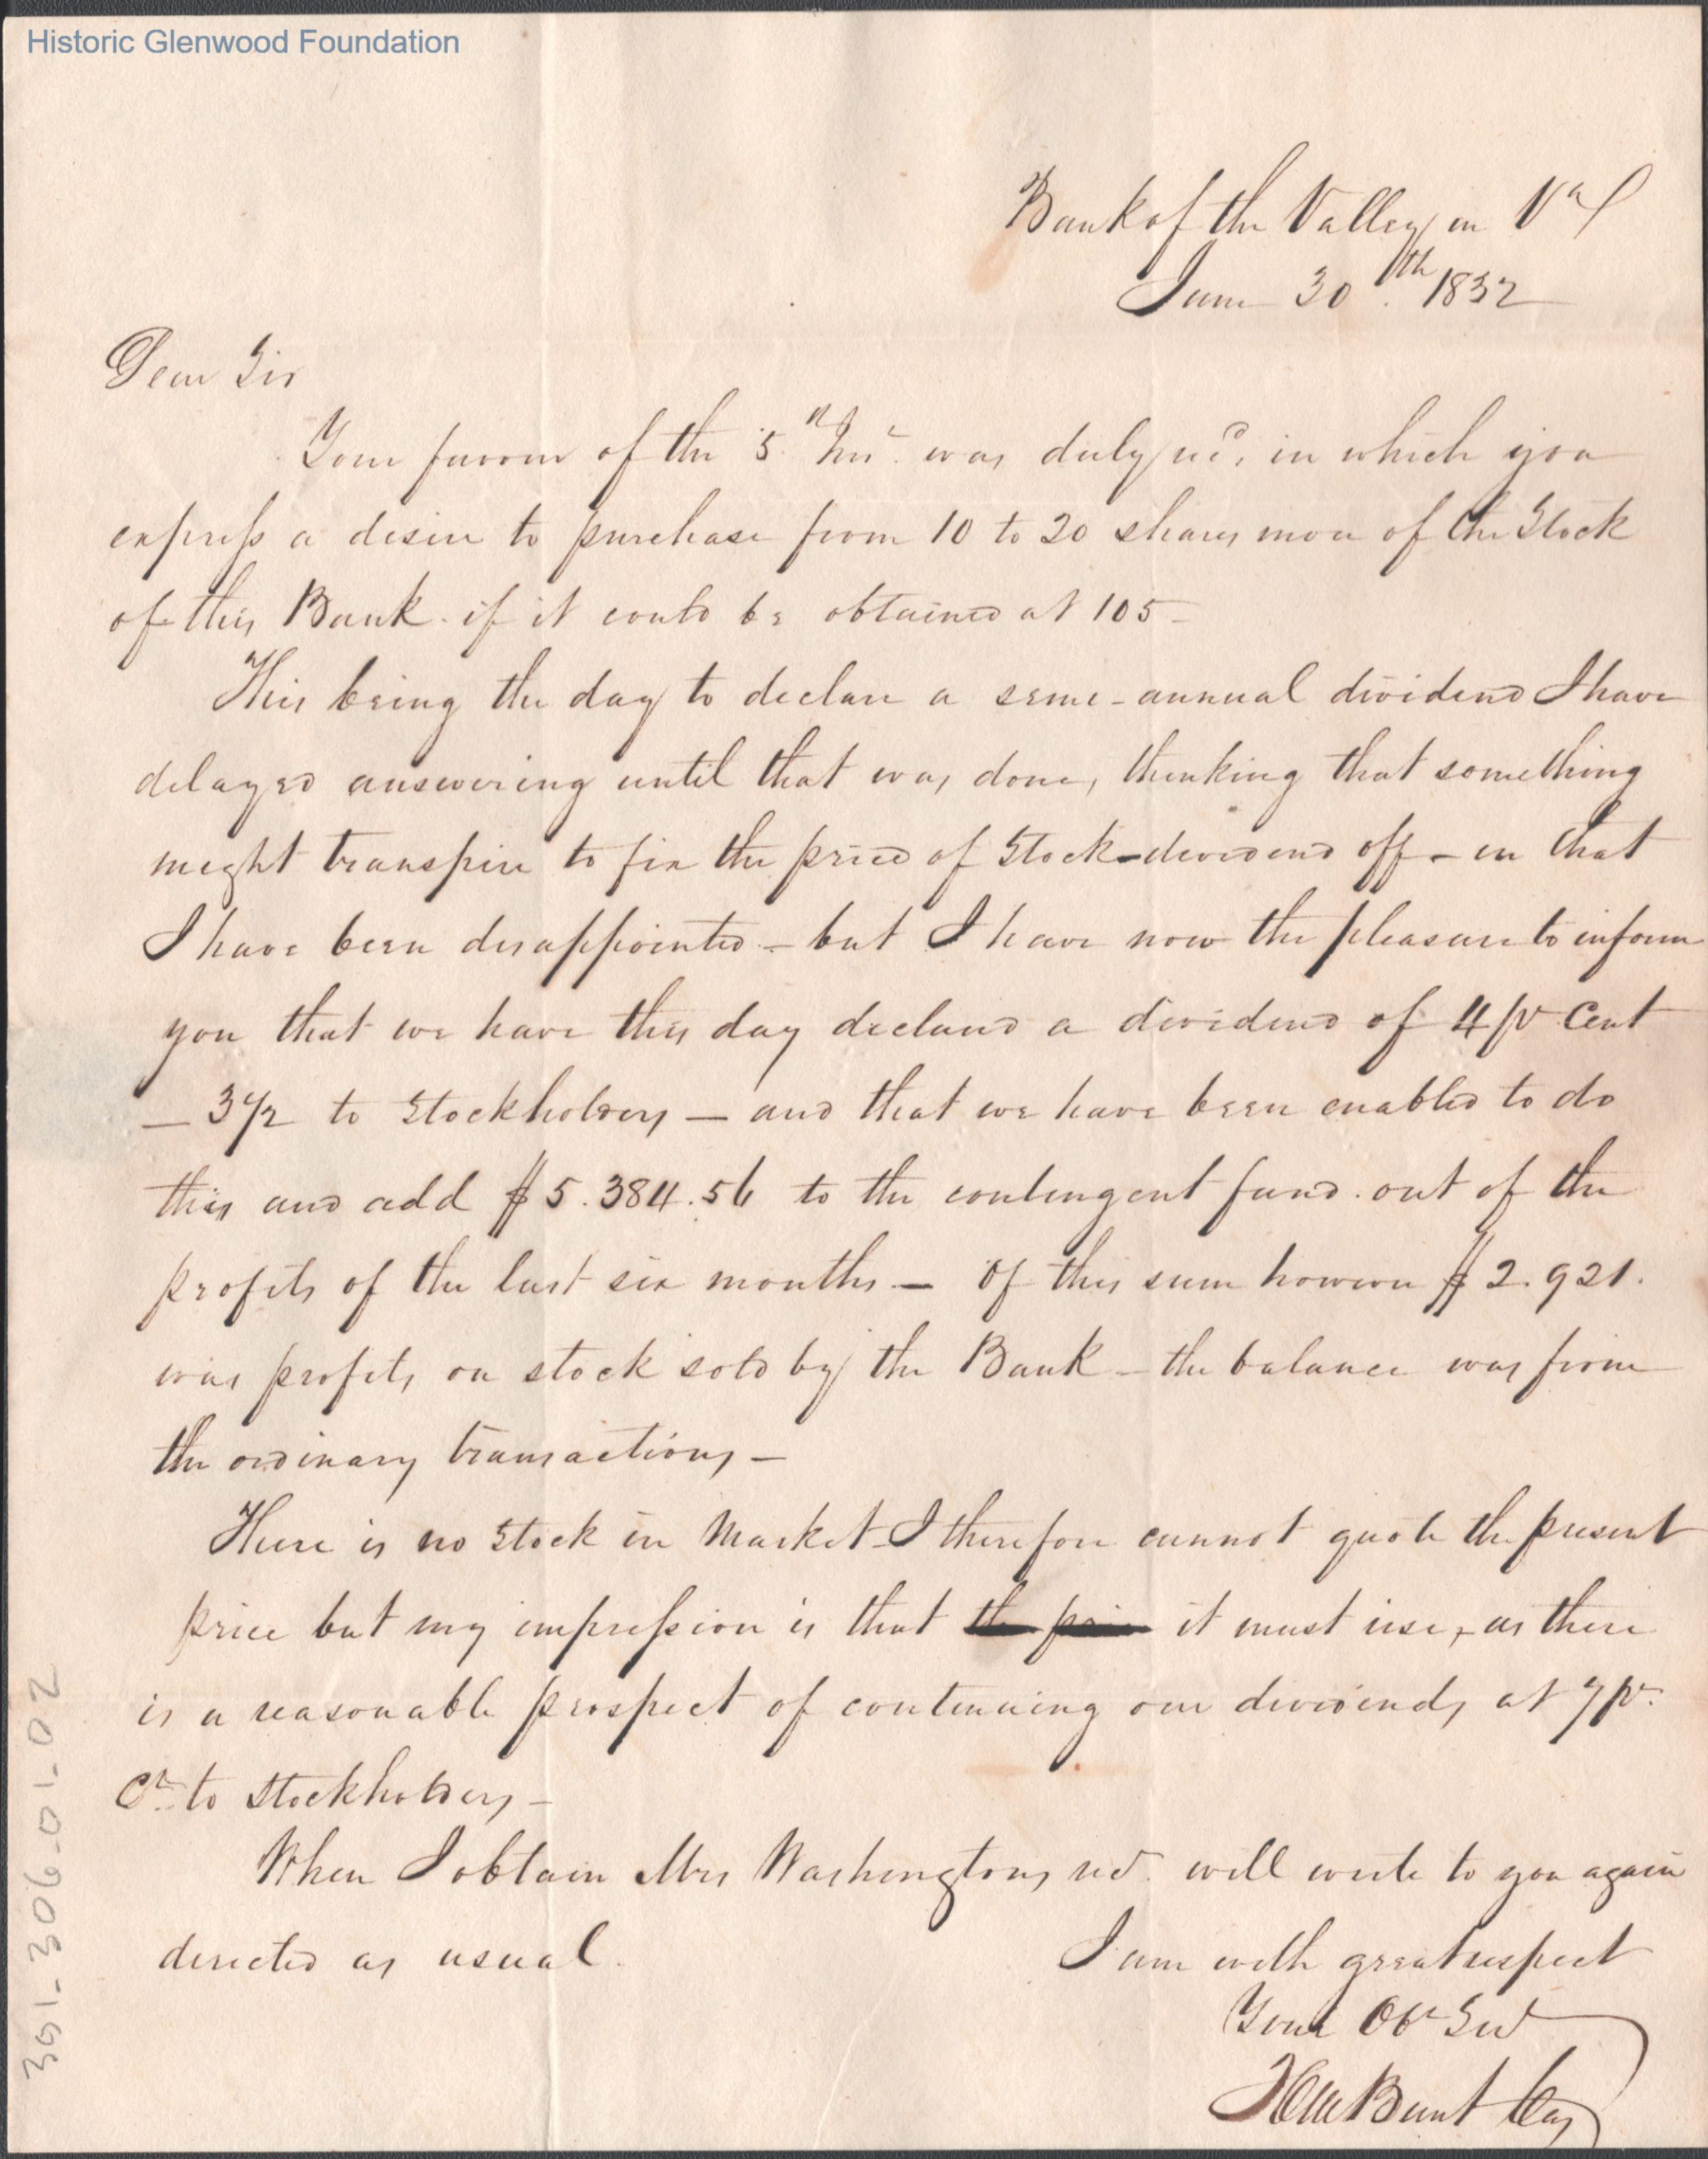 Historic Glenwood Foundation
Bank of the Valley in Va
June 30th 1832
Dear Sir
Your favour of the 5th Inst. was duly recd, in which you
express a desire to purchase from 10 to 20 shares more of the Stock
of this Bank. if it could be obtained at 105 -
This being the day to declare a seme-annual dividend I have
delayed answering until that was done, thinking that something
might transpire to fix the price of Stock - dividend off - in that
I have been disappointed - but I have now the pleasure to inform
you that we have this day declared a dividend of 4 pr Cent
— 3 1/2 to Stockholders — and that we have been enabled to do
this and add $5.384.56 to the contingent fund. out of the
profits of the last six months — Of this sum however $2.921.
was profits on stock sold by the Bank - the balance was from
the ordinary transactions —
There is no Stock in Market - I therefore cannot quote the present
price but my impression is that the price it must rise, - as there
is a reasonable prospect of continuing our dividends at 7 pr.
Ct. to Stockholders -
When I obtain Mrs Washingtons recd. will write to you again
directed as usual.
I am with great respect
Your Obt Servt
H M Brent Cas
351-306-01-02